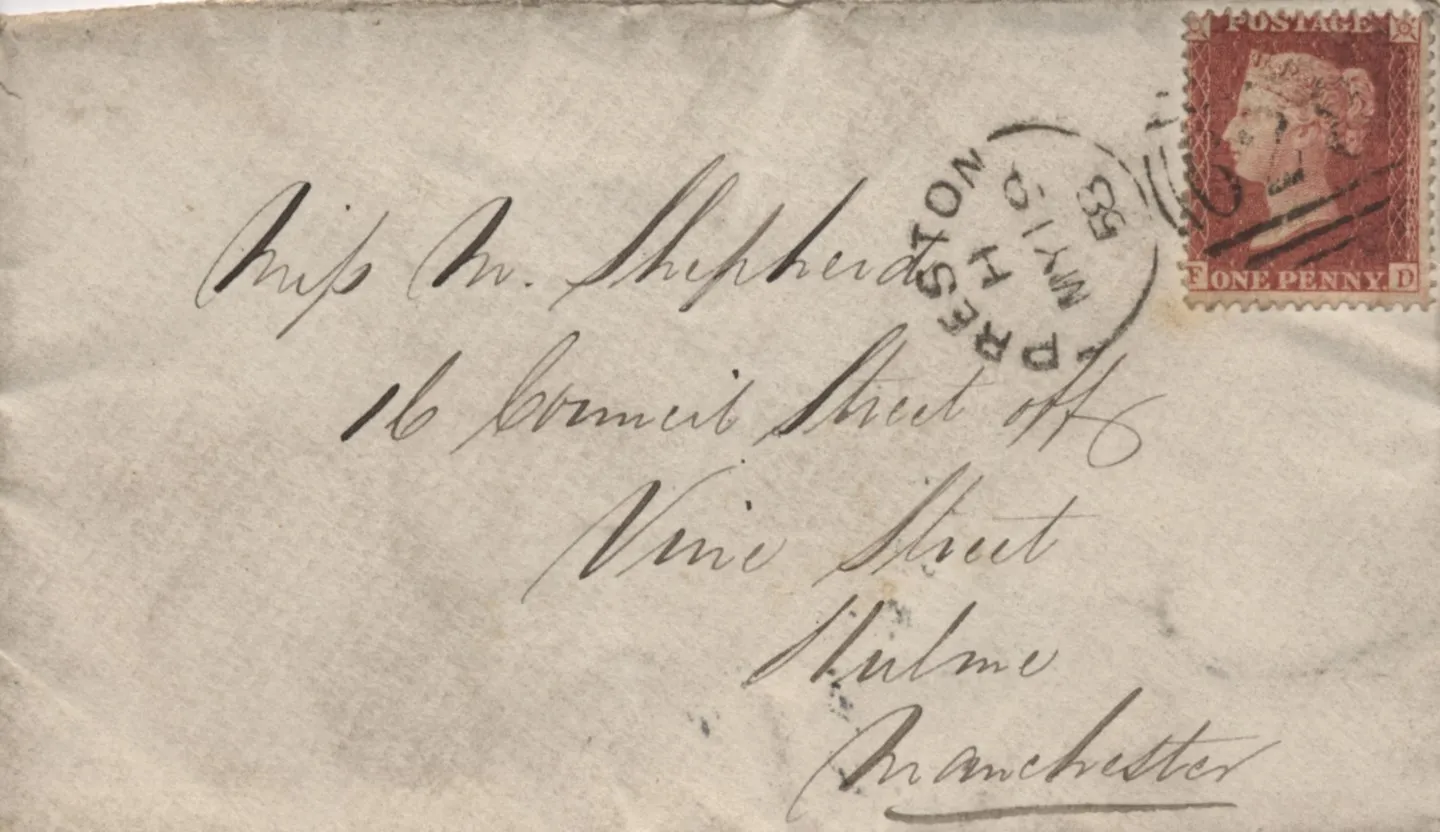 POSTAGE
ONE PENNY.
F D
PRESTON
H
MY 12
58
Miſs M. Shepherd
16 Council Street off
Vine Street
Hulme
Manchester